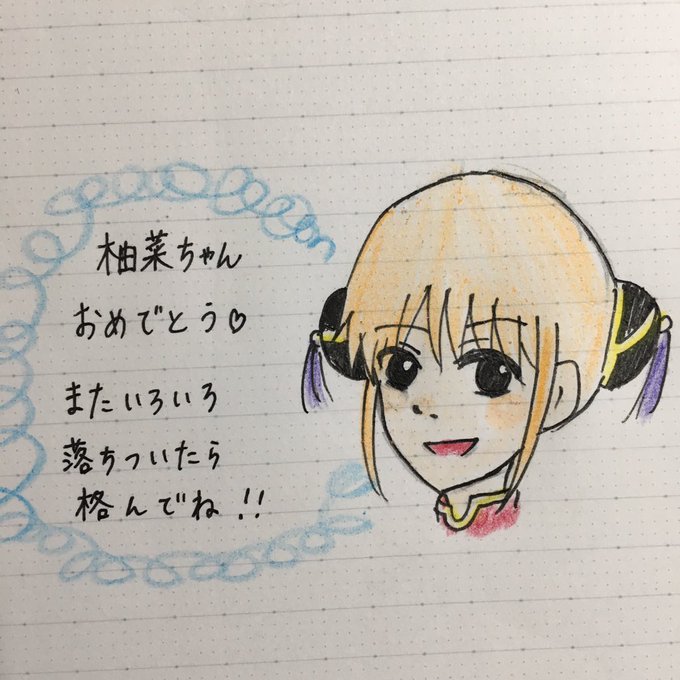 柚菜ちゃん
おめでとう♡
またいろいろ
落ちついたら
格んでね!!